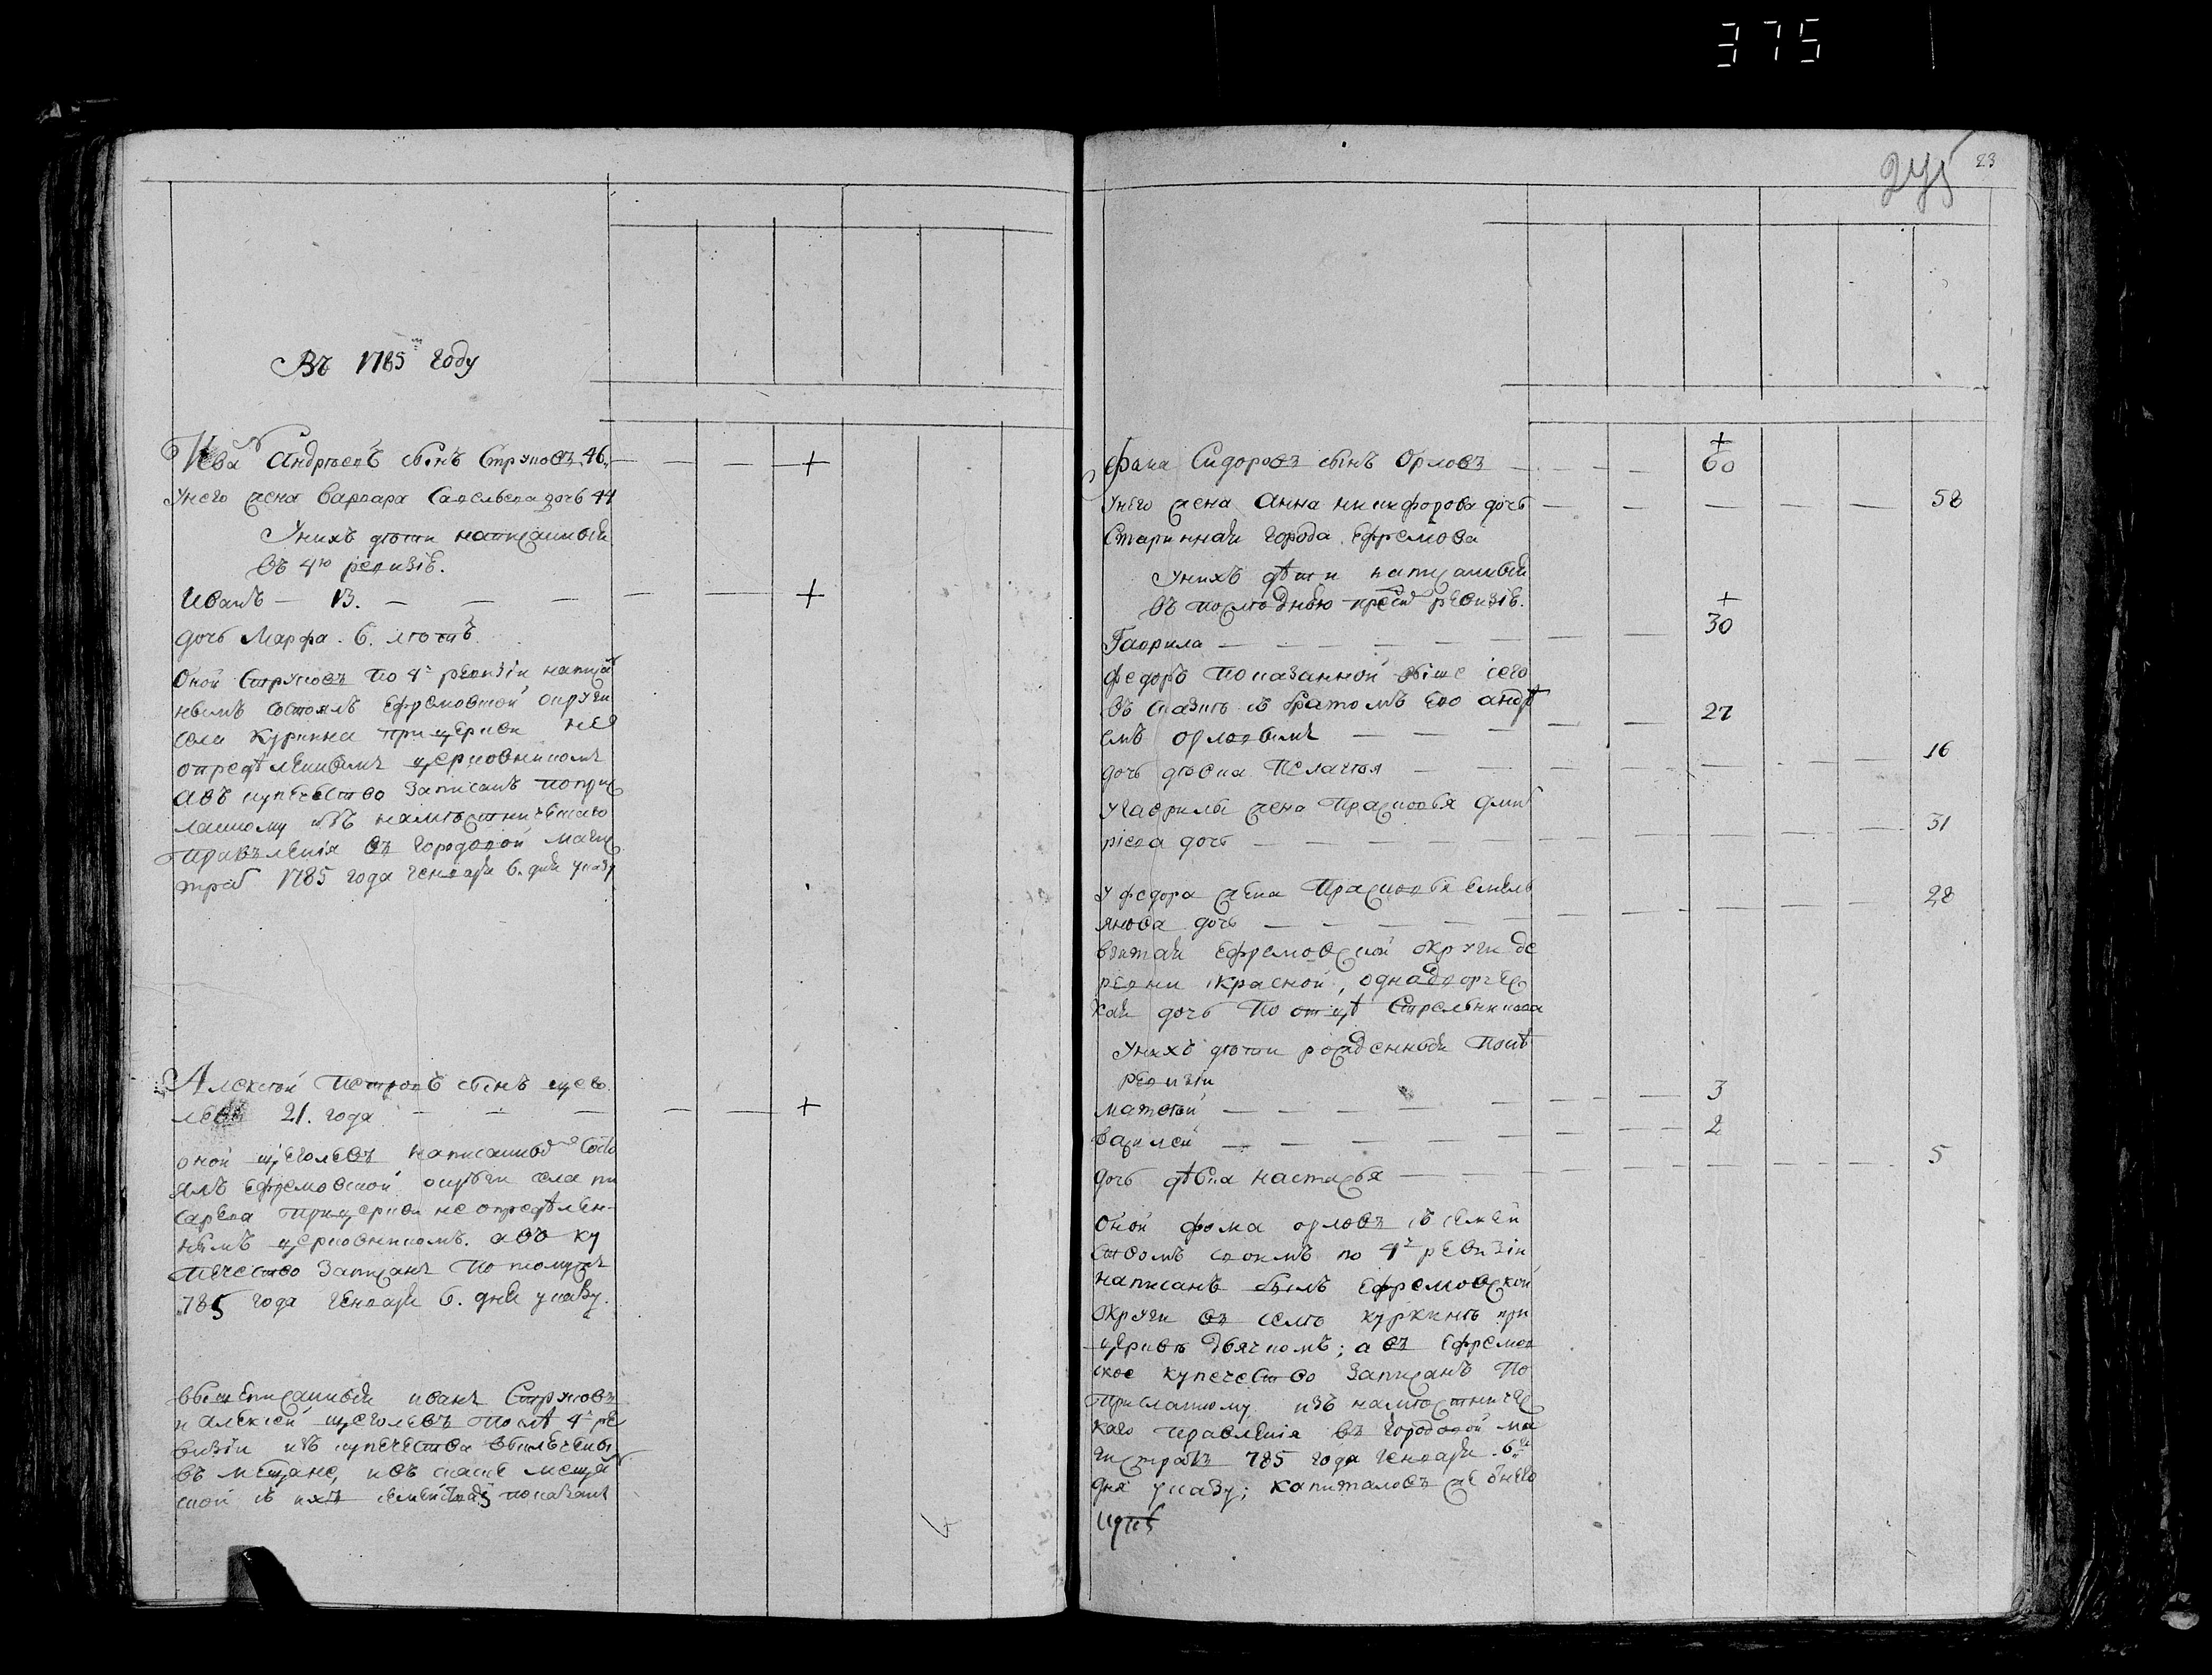 375
245 23
Въ 1785м году
Ива Андреевъ сынъ Струковъ 46.
Унего жена Варвара Савельева дочь 44
Унихъ дѣти написанныи
въ 4ю ревизiю.
Иванъ — 13. — — — — — +
дочь Марфа. 6. лѣтъ
Оной Струковъ по 4й ревизiи написа
нымъ состоялъ Ефремовской округи
села Куркина при церкви не
опредѣленнымъ церковникомъ
авъ купечество записанъ поприс
ланному изъ намѣстническаго
правленiя въ городовой магис
тратъ 1785 года генваря 6. дня указу
Алексѣй Петровъ сынъ щего
левъ 21. года — — — — — +
оной щеголевъ написанной состо
ялъ Ефремовской округи села
при церкви не опредѣлен-
нымъ церковникомъ. авъ ку
печество записанъ по томужъ
785 года генваря 6. дня указу.
вышеписанныи иванъ Струковъ
и алексей щеголевъ послѣ 4й ре
визiи изъ купечества выключены
въ мещане, ивъ сказке меща
ской съ ихъ семействы показаны
+
Фама Сидоровъ сынъ Орловъ — — — — 60
унего жена Анна никифорова дочь — — — — — 58
Стариннаи города Ефремова
Унихъ дѣти написанныи
въ последнюю предъ ревизiю.
+
Гаврила — — — — — — — 30
федоръ показанной выше сего
въ сказкѣ съ братомъ ево андрѣ
емъ орловымъ — — — — — 27
дочь дѣвка Пелагѣя — — — — — — — 16
угаврилы жена Прасковья дмит
рiева дочь — — — — — — — — — 31
У федора жена Прасковья Емель
янова дочь — — — — — — — — — 28
взятаи Ефремовской округи де
ревни красной, однадворчес
каи дочь по отцѣ Стрельникова
Унихъ дѣти рожденныи послѣ
ревизiи
матвѣй — — — — — — — 3
василей — — — — — — — 2
дочь дѣвка настасья — — — — — — 5
Оной фома орловъ съ семей
ствомъ своимъ по 4й ревизiи
написанъ былъ Ефремовской
округи въ селѣ куркинѣ при
церквѣ дьячкомъ; авъ Ефремов
ское купечество записанъ по
присланному изъ намѣстничес
каго правленiя въ городовой ма
гистратъ 785 года генваря 6го
дня указу; капиталовъ же онего